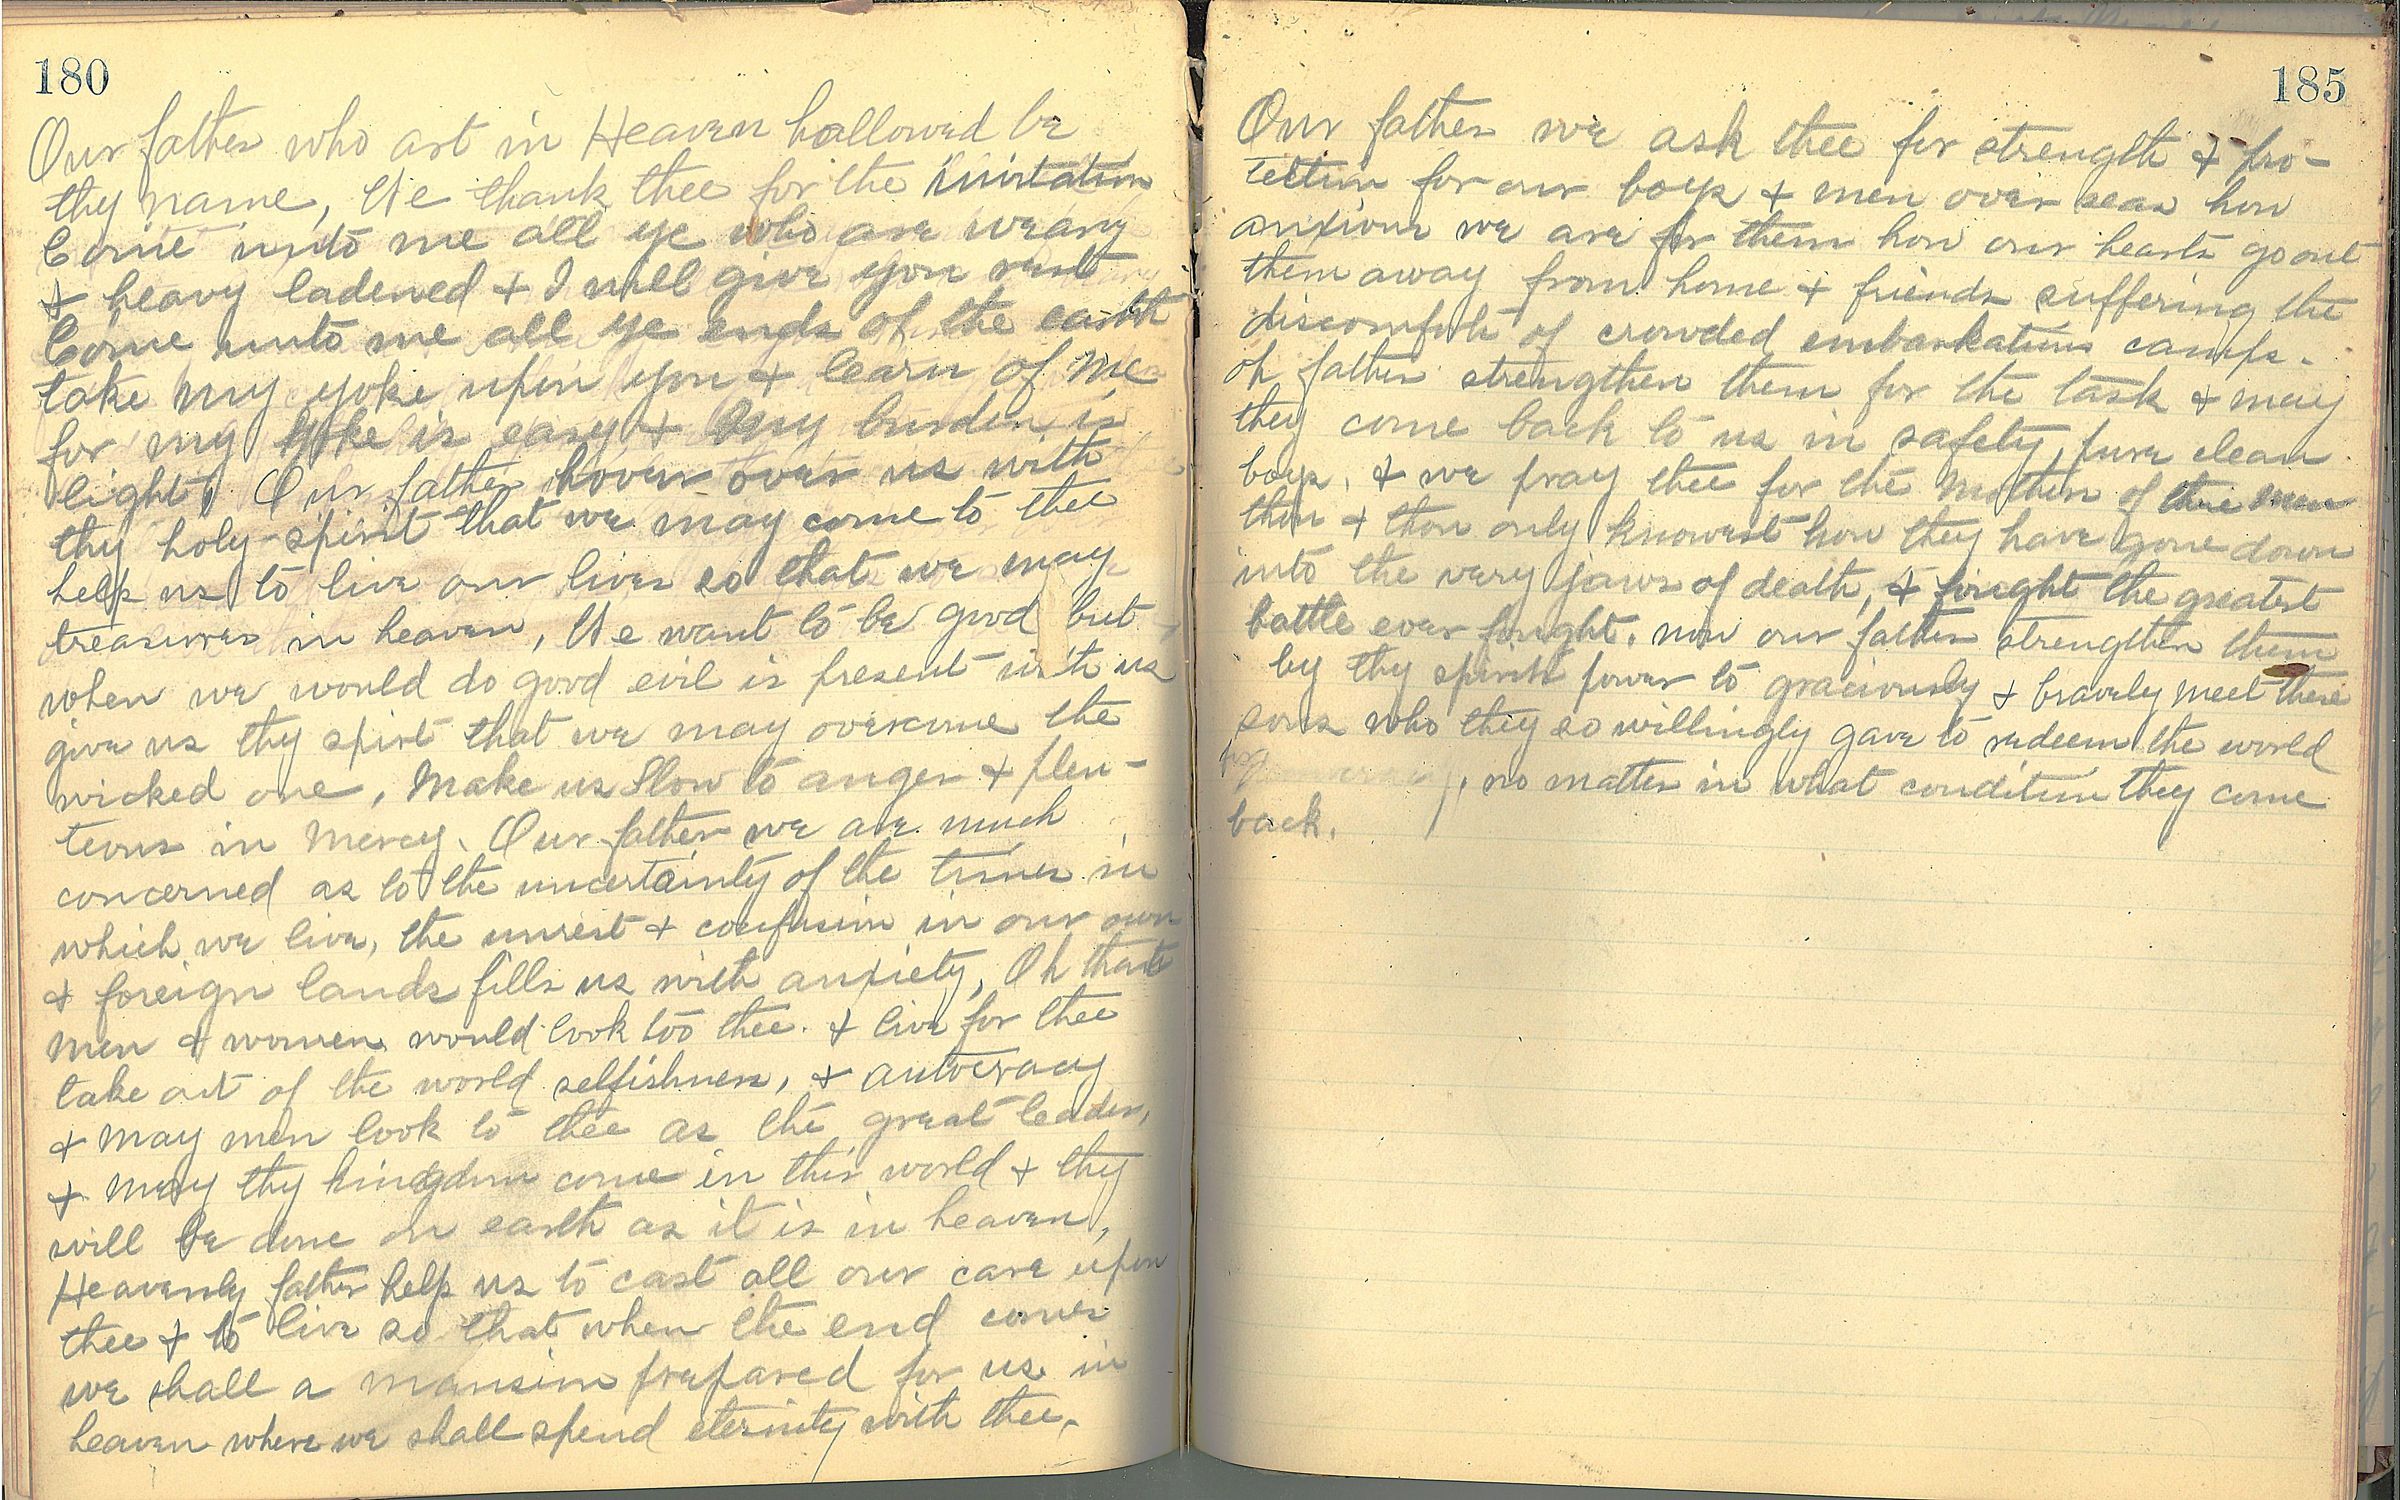 180
Our father who art in Heaven hallowed be
thy name, We thank thee for the invitation
Come unto me all ye who are weary
& heavy ladened & I will give you rest
Come unto me all ye ends of the earth
take my yoke upon you & learn of me
for my yoke is easy & my burden is
light. Our father hover over us with
thy holy-spirit that we may come to thee
help us to live our lives so that we may
treasures in heaven, We want to be good but
when we would do good evil is present with us
give us thy spirit that we may overcome the
wicked one, Make us slow to anger & plen-
teous in mercy. Our father we are much
concerned as to the uncertainty of the times in
which we live, the unrest & confusion in our own
& foreign lands fills us with anxiety, Oh that
men & women would look too thee. & live for thee
take out of the world selfishness, & autocracy
& may men look to thee as the great leader,
& may thy kingdom come in this world & thy
will be done on earth as it is in heaven,
Heavenly father help us to cast all our care upon
thee & to live so that when the end comes
we shall a mansion prepared for us in
heaven where we shall spend eternity with thee,
185
Our father we ask thee for strength & pro-
tection for our boys & men over seas how
anxious we are for them how our hearts go out
them away from home & friends suffering the
discomforts of crowded embarkation camps.
oh father strengthen them for the task & may
they come back to us in safety, pure clean
boys, & we pray thee for the mothers of these men
thou & thou only knowest how they have gone down
into the very jaws of death, & fought the greatest
battle ever fought. now our father strengthen them
by thy spirits power to graciously & bravely meet these
sons who they so willingly gave to redeem the world
no matter in what condition they come
back.